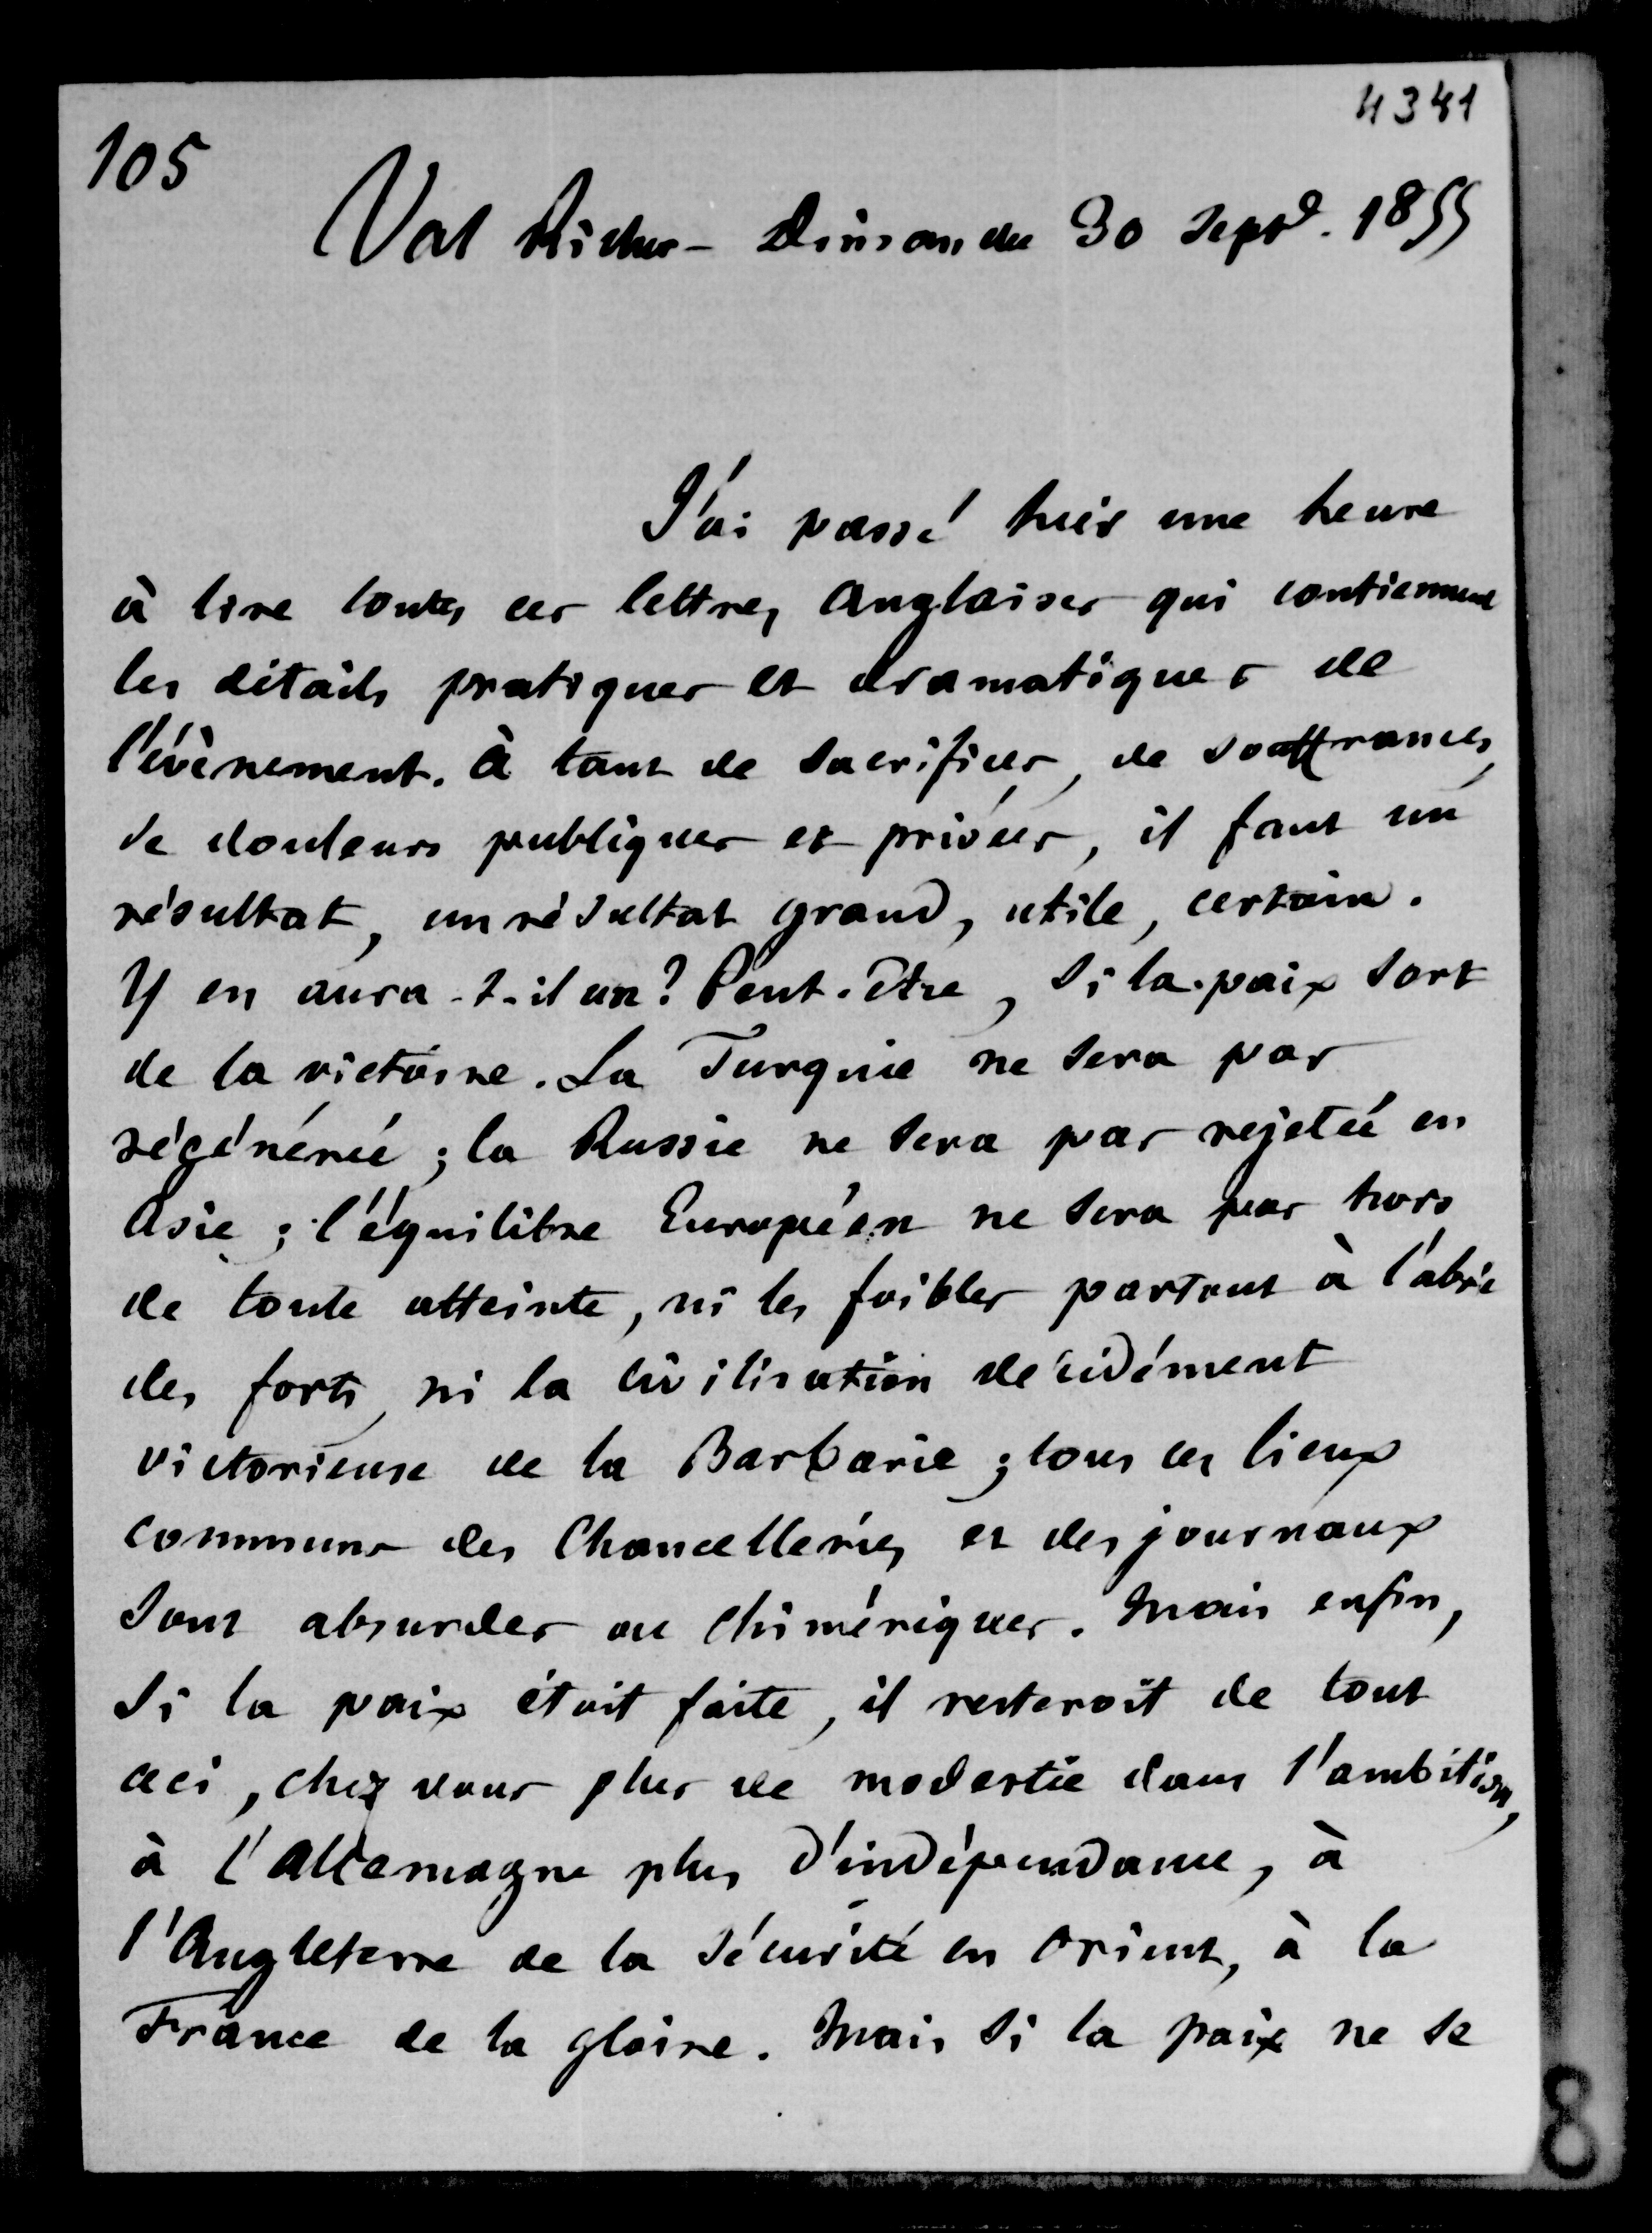 4341
105
Val Richer - Dimanche 30 Sept. 1855
J'ai passé hier une heure
à lire toutes ces lettres Anglaises qui contiennent
les détails pratiques et dramatiques de
l'évènement. à tant de sacrifices, de souffrances,
de douleurs publiques et privées, il faut un
résultat, un résultat grand, utile, certain.
Y en aura-t-il un? Peut-être, si la paix sort
de la victoire. La Turquie ne sera pas
régénérée ; la Russie ne sera pas rejetée en
Asie ; l'équilibre Européen ne sera pas hors
de toute atteinte, ni les foibles partout à l'abri
des forts, ni la civilisation décidément
victorieuse de la Barbarie ; tous ces lieux
communs des Chancelleries et des journaux
sont absurdes ou chimériques. Mais enfin,
si la paix étoit faite, il resteroit de tout
ceci, chez vous plus de modestie dans l'ambition,
à l'Allemagne plus d'indépendance, à
l'Angleterre de la sécurité en Orient, à la
France de la gloire. Mais si la paix ne se
8